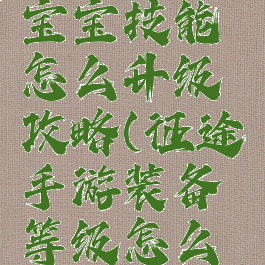 宝宝技能
怎么升级
攻略(征途
手游装备
等级怎么